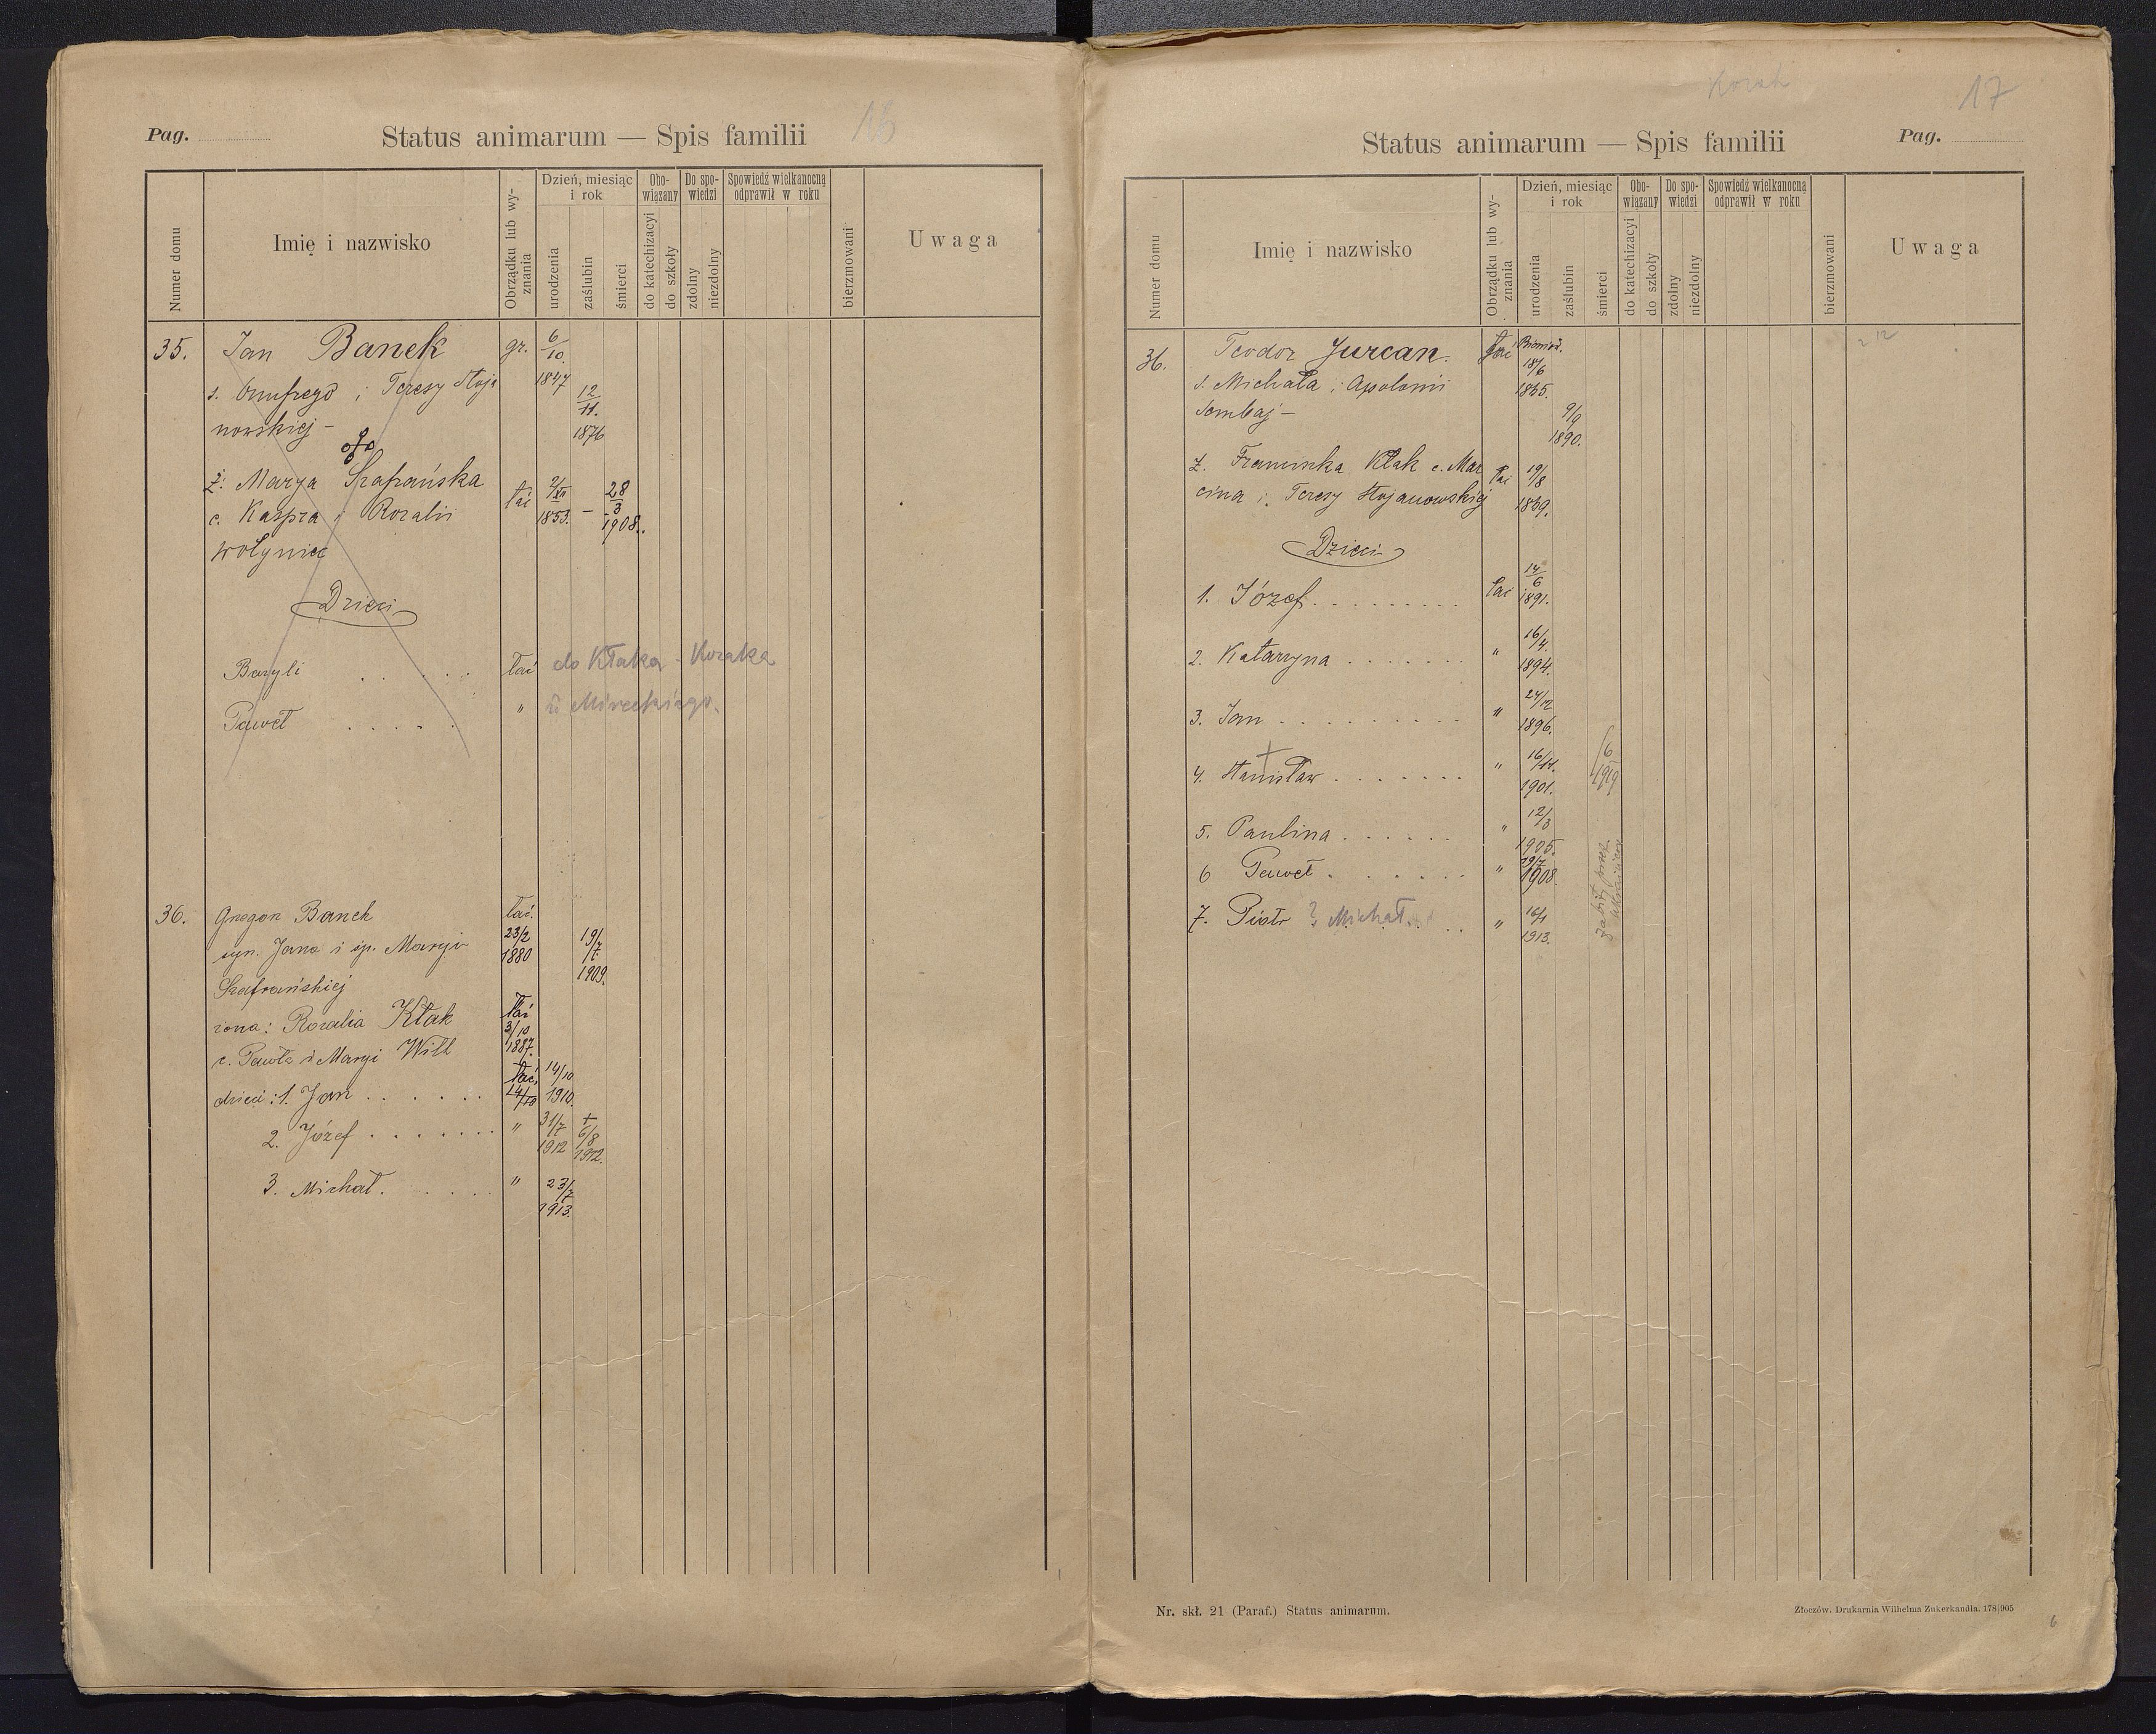 Pag.
Status animarum — Spis familii
Numer domu
Imię i nazwisko
Obrządku lub wyznania
Dzień, miesiąc i rok
urodzenia
zaślubin
śmierci
Obowiązany
do katechizacyi
do szkoły
Do spowiedzi
zdolny
niezdolny
Spowiedź wielkanocną odprawił w roku
bierzmowani
Uwaga
35. Jan Banek gr. 6/10. 1847
s. Onufrego i Teresy Stoja
nowskiej – 12/11. 1876
ż. Marya Szafrańska
c. Kaspra i Rozalii łać 1853. – 28/3 1908.
Wołyniec
Dzieci
Bazyli . . . . . łać do Kłaka - Kozaka
Paweł . . . . . " Mireckiego.
36. Gregor Banek łać.
syn. Jana i śp. Maryi 23/2 1880 19/7 1909.
Szafrańskiej
żona: Rozalia Kłak łać 3/10 1887.
c. Pawła i Maryi Will
dzieci: 1. Jan . . . . . . łać 14/10 14/10 1910.
2. Józef . . . . . . . " 31/7 1912 + 6/8 1912.
3. Michał . . . . . " 23/7 1913.
17
Status animarum — Spis familii
Pag.
Numer domu
Imię i nazwisko
Obrządku lub wyznania
Dzień, miesiąc i rok
urodzenia
zaślubin
śmierci
Obowiązany
do katechizacyi
do szkoły
Do spowiedzi
zdolny
niezdolny
Spowiedź wielkanocną odprawił w roku
bierzmowani
Uwaga
36. Teodor Jurcan.
s. Michała i Apolonii 18/6
Sombaj – 9/9 1890.
ż. Franciszka Kłak c. Mar łać 19/8
cina i Teresy Stojanowskiej 1869.
Dzieci
1. Józef . . . . . . . . . łać 14/6 1891.
2. Katarzyna . . . . . . . " 16/4. 1894.
3. Jan . . . . . . . . . . " 24/12 1896.
4. Stanisław . . . . . . . " 16/11. 1901. /6 1919
5. Paulina . . . . . . " 12/3 1905.
6 Paweł . . . . . . . " 29/7 1908.
7. Piotr ? Michał . . . " 16/1 1913.
zabity przez
Nr. skł. 21 (Paraf.) Status animarum.
Złoczów. Drukarnia Wilhelma Zukerkandla. 178|905
6